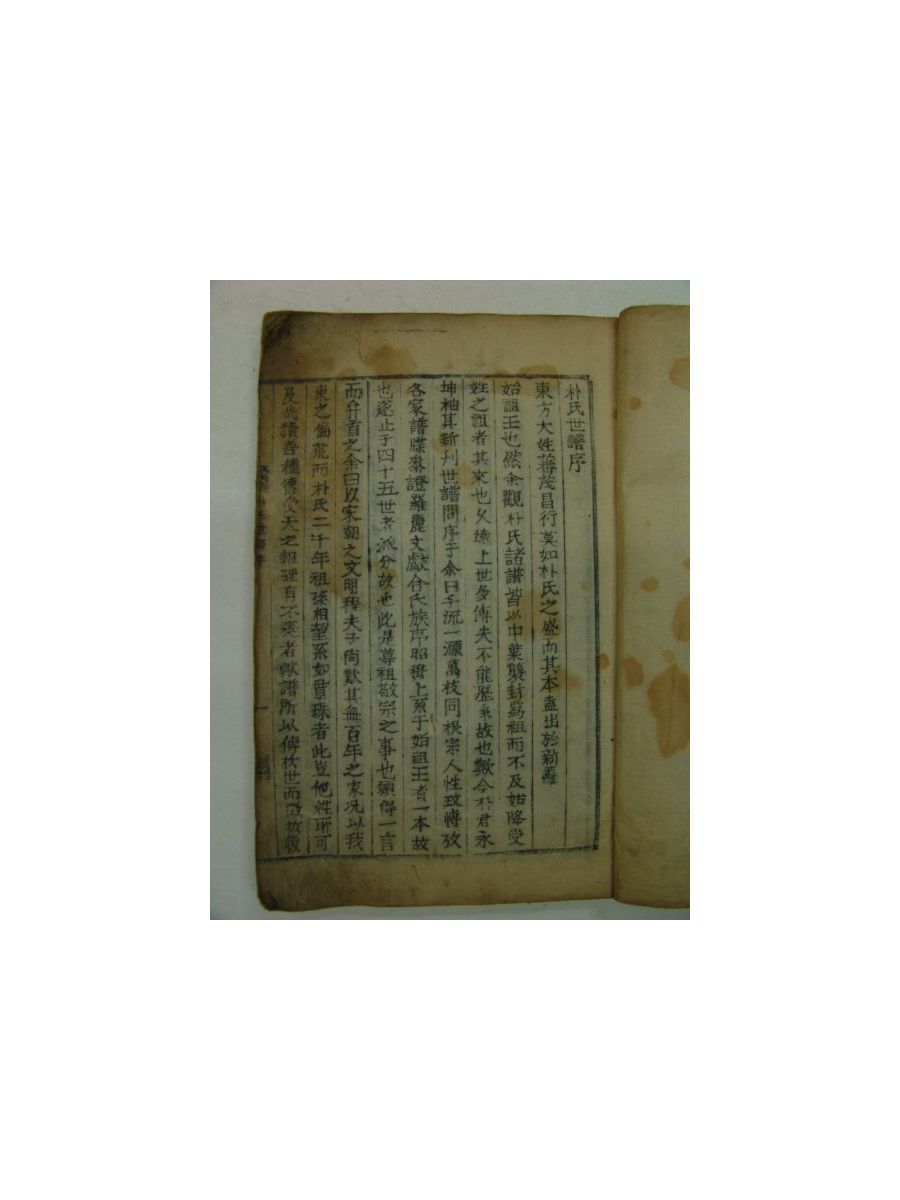 朴氏世譜序
東方大姓蕃茂昌衍莫如朴氏之盛而其本盖出於新羅
始祖王也然余觀朴氏諸譜皆以中葉襲封爲祖而不及始降受
姓之祖者其來也久遠上世多傳失不能歷系故也歟今朴君永
坤袖其新刊世譜問序于余曰千流一源萬枝同根宗人性玟博攷
各家譜牒叅證羅麗文獻合氏族序昭穆上系于始祖王者一本故
也逐止于四十五世者派分故也此是尊祖敬宗之事也願得一言
而弁首之余曰以宋朝之文明程夫子尙歎其無百年之家况以我
東之偏荒而朴氏二千年祖孫相望系如貫珠者此豈他姓所可
及哉積善種德受天之報理有不爽者歟譜所以傳於世而徵於後